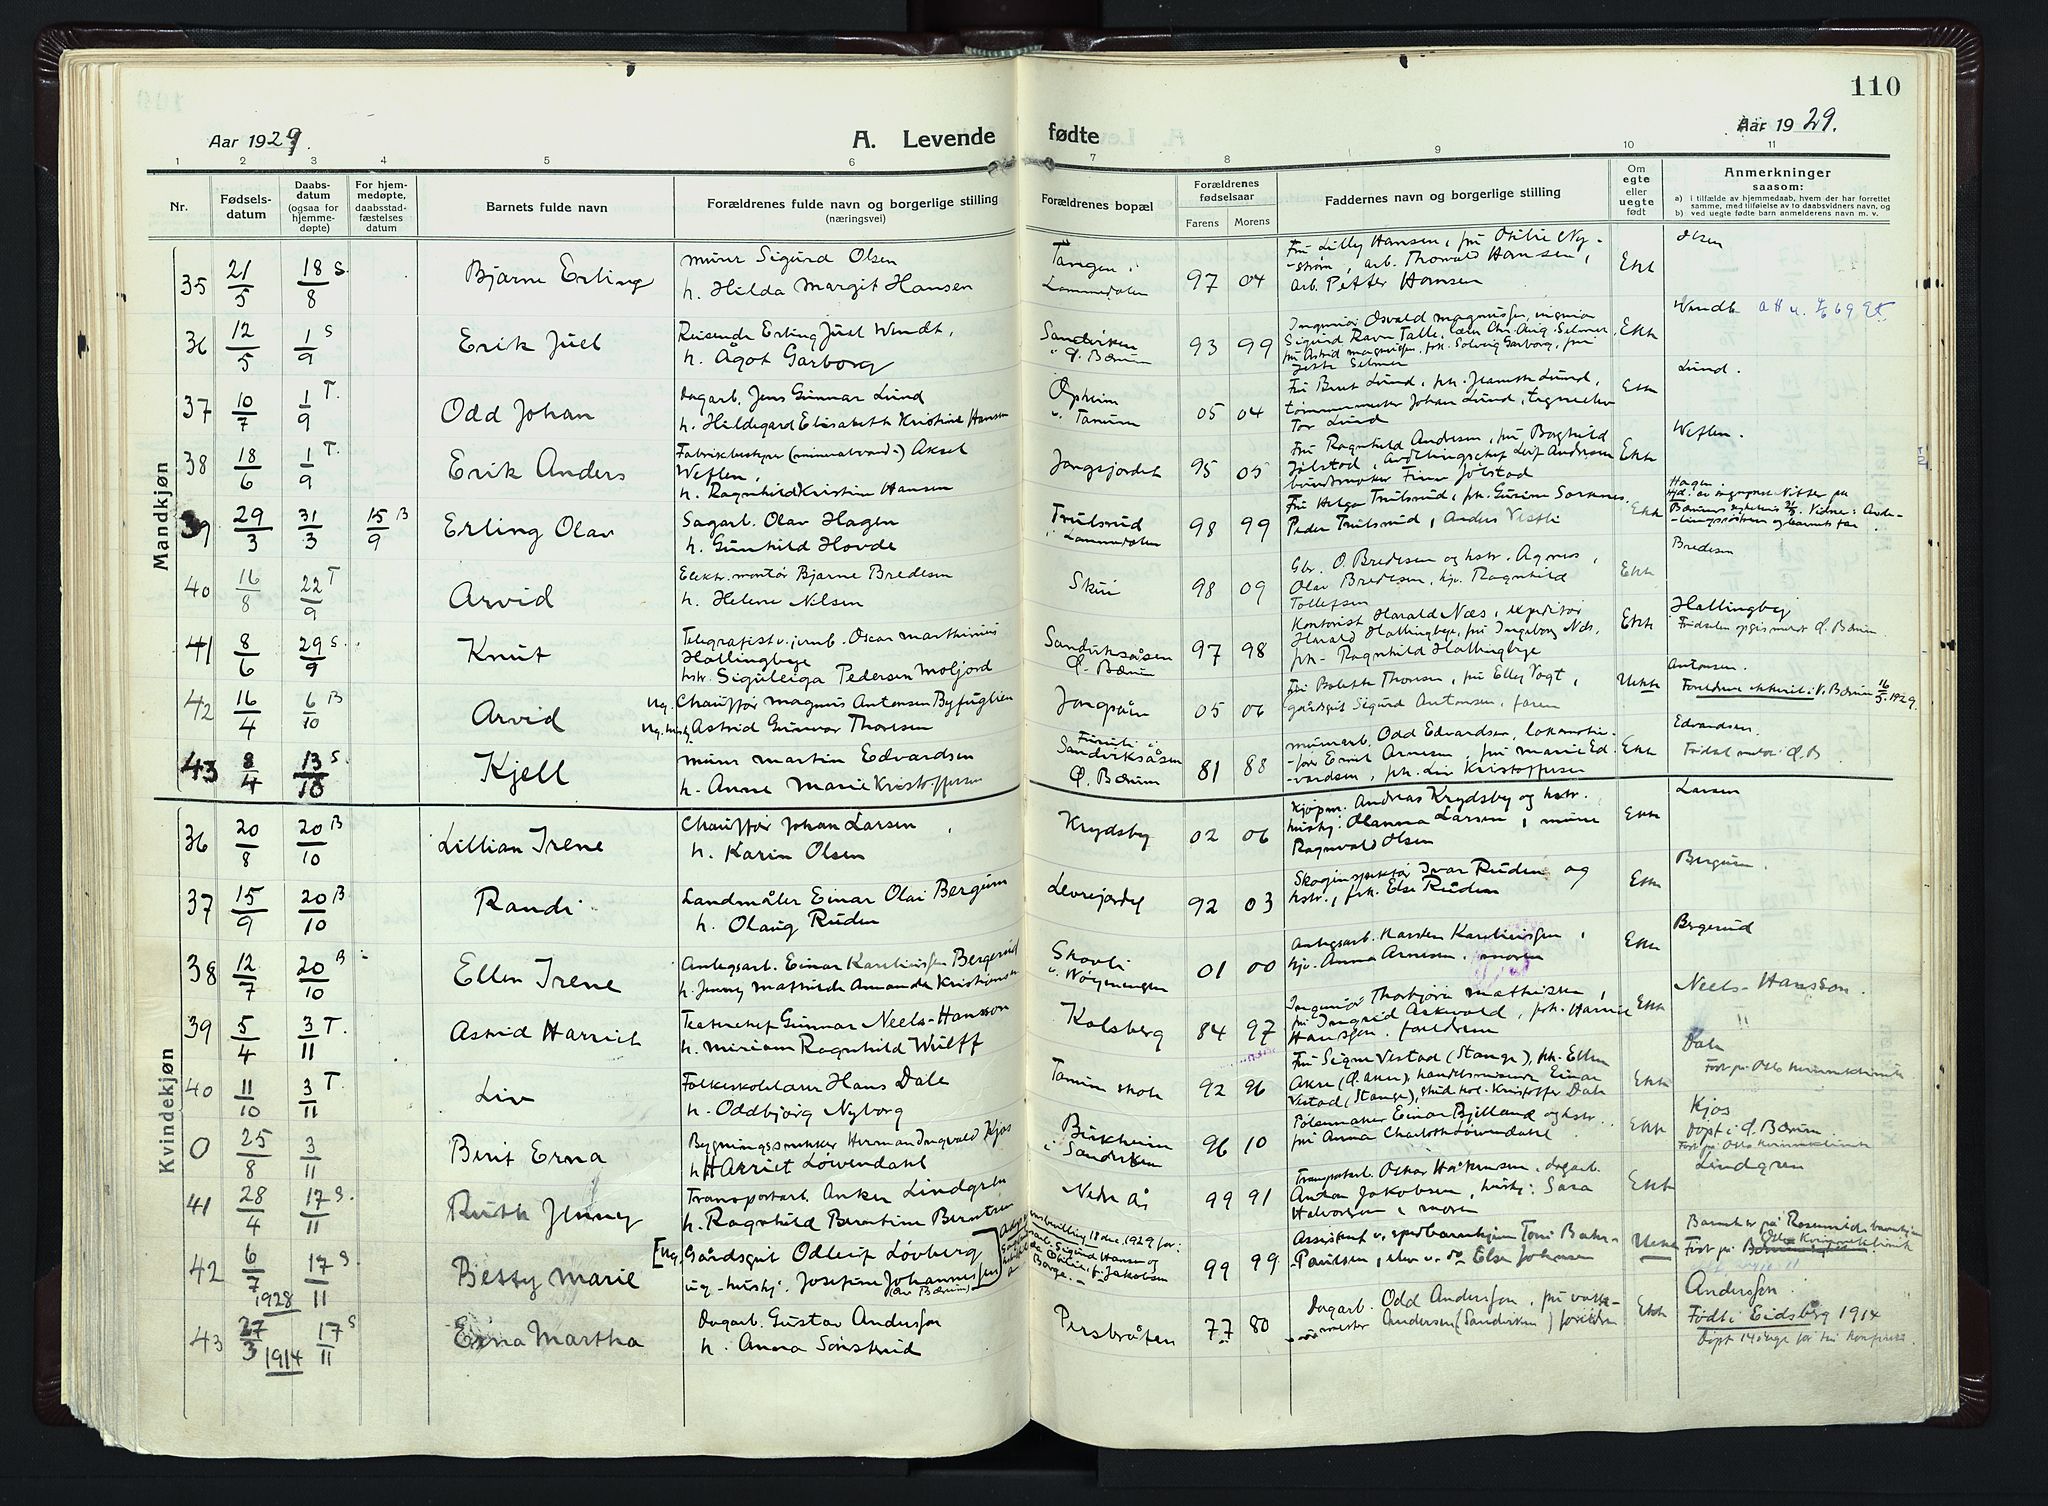 110
Aar 1929.
A. Levende fødte
Aar 1929.
1 2 3 4 5 6 7 8 9 10 11
Nr.
Fødsels-
datum
Daabs-
datum
(ogsaa for
hjemme-
døpte)
For hjem-
medøpte,
daabsstad-
fæstelses
datum
Barnets fulde navn
Forældrenes fulde navn og borgerlige stilling
(næringsvei)
Forældrenes bopæl
Forældrenes
fødselsaar
Farens Morens
Faddernes navn og borgerlige stilling
Om
egte
eller
uegte
født
Anmerkninger
saasom:
a) i tilfælde av hjemmedaab, hvem der har forrettet
samme, med tilføielse av to daabsvidners navn, og
b) ved uegte fødte barn anmelderens navn m. v.
Mandkjøn
35 21/5 18/8 S. Bjarne Erling
murer Sigurd Olsen
h. Hilda Margit Hansen
Tangen i
Lommedalen
97 04
Fru Lilly Hansen, fru Otilie Ny-
-strøm, arb. Thorvald Hansen,
arb. Petter Hansen
Ekte
Olsen
36 12/5 1/9 S Erik Juel
Reisende Erling Juel Wendt,
h. Ågot Garborg
Sandviken
Ø. Bærum
93 99
Ingeniør Osvald Magnussen, ingeniør
Sigurd Ravn Talle, Chr. Aug. Selmer,
fru Astrid Magnussen, frk. Solveig Garborg, fru
Selmer
Ekte
Wendt
37 10/7 1/9 T. Odd Johan
Dagarb. Jens Gunnar Lund
h. Hildegard Elisabeth Kristine Hansen
Øpheim
v. Tanum
05 04
Fru Berit Lund, frk. Jeanette Lund,
tømmermester Johan Lund,
Tor Lund
Ekte
Lund.
38 18/6 1/9 T. Erik Anders
Fabrikbestyrer (mineralvand-) Aksel
Weflen,
h. Ragnhild Kristine Hansen
Jongsjordet
95 05
Fru Ragnhild Andresen, fru Borghild
Jølstad, Avdelingschef Leif Andresen
buntmaker Finn Jølstad
Ekte
Weflen.
39 29/3 31/3 15/9 B Erling Olav
Sagarb. Olav Hagen
h. Gunhild Hovde
Trulsrud
i Lommedalen
98 99
Fru Helga Trulsrud, frk. Gurine
Peder Trulsrud, Anders Vestli
Ekte
Hagen.
40 16/8 22/9 T Arvid
Elektr. montør Bjarne Bredesen
h. Helene Nilsen
Skui
98 09
Gbr. O. Bredesen og hstr. Agnes,
Olav Bredesen, hjv. Ragnhild
Tollefsen
Ekte
Bredesen
41 8/6 29/9 S. Knut
Telegrafist v. jernb. Oscar Marthinius
Hallingbye
hstr. Siguleiga Pedersen Moljord
Sandviksåsen
Ø. Bærum
97 98
Kontorist Harald Næs, expeditør
Harald Hallingbye, fru Ingeborg Næs,
frk. Ragnhild Hallingbye
Ekte
Hallingbye
42 16/4 6/10 B Arvid
Ug. Chauffør Magnus Antonsen Byfuglien
Ug. hushj. Astrid Gunvor Thoresen
05 06
Fru Bolette Thoresen, fru Elly Vogt,
gårdsgut Sigurd Antonsen, faren
Uekte
Antonsen.
Foreldrene ekteviet i V. Bærum 16/5. 1929.
43 8/4 13/10 S. Kjell
Murer Martin Edvardsen
h. Anne Marie Kristoffersen
Furuli i
Sandviksåsen
Ø. Bærum
81 88
murarb. Odd Edvardsen, lokomotiv-
-fører Emil Arnesen, fru Marie Ed-
-vardsen, frk. Liv Kristoffersen
Ekte
Edvardsen.
Kvindekjøn
36 20/8 20/10 B Lillian Irene
Chauffør Johan Larsen
h. Karin Olsen
Krydsby
02 06
Kjøpm. Andreas Krydsby og hstr.
hushj. Olanna Larsen, murer
Ragnvald Olsen
Ekte
Larsen
37 15/9 20/10 B Randi
Landmåler Einar Olai Bergum
h. Olaug Ruden
Levrejordet
92 03
Skoginspektør Ivar Ruden og
hstr., frk. Else Ruden
Ekte
Bergum.
38 12/7 20/10 B Ellen Irene
Anlegsarb. Einar Karelinissen Bergerud
h. Jenny Mathilde Amanda Kristiansen
Skovli
v. Wøyenengen
01 00
Anlegsarb. Karsten Karelinissen,
hjv. Anna Arnesen, moren
Ekte
Bergerud
39 5/4 3/11 T. Astrid Harriet
Teaterchef Gunnar Neels-Hansson
h. Miriam Ragnhild Wulff
Kolsberg
84 97
Ingeniør Thorbjørn Mathisen,
fru Ingrid Askvold, frk. Harriet
Hansson, foreldrene
Ekte
Neels-Hansson.
40 11/10 3/11 T. Liv
Folkeskolelærer Hans Dale
h. Oddbjørg Nyborg
Tanum skole
92 96
Fru Signe Vestad (Stange), frk. Ellen
Aker (Ø. Aker), handelsreisende Einar
Vestad (Stange), stud. real. Kristoffer Dale
Ekte
Dale
Født på Oslo Kvinneklinik
0 25/8 3/11 Berit Erna
Bygningssnekker Herman Ingvald Kjos
h. Harriet Løwendahl
Birkheim
i Sandviken
96 10
Pølsemaker Einar Bjelland og hstr.
fru Anna Charlotte Løwendahl
Ekte
Kjos
Døpt i Ø. Bærum.
Født på Oslo Kvinneklinik
41 28/4 17/11 S. Ruth Jenny
Transportarb. Anker Lindgren
h. Ragnhild Berntine Berntsen
Nedre Å
99 91
Transportarb. Oskar Håkensen, dagarb.
Anton Jakobsen, hushj. Sara
Halvorsen, moren
Ekte
Lindgren
42 6/7 1928 17/11 S. Betty Marie
[Ug. Gårdsgut Odleif Løvberg
ug. hushj. Josefine Johannessen
(Ø. Bærum)
18 dec. 1929 for:
arb. Sigurd Hansen og
Otilie, f. Jakobsen
Borge.
99 99
Assistent v. spedbarnhjem Toni Bakr-
-Paulsen, elev v. do Else Johnsen
Uekte
Barnet er på Rosenvilds barnehjem
Født på Oslo Kvinneklinik
43 27/3 1914 17/11 S Erna Martha
Dagarb. Gustav Anderssen
h. Anna Sørsterud
Persbråten
77 80
Dagarb. Odd Anderssen, fru vakt-
mester Andersen (Sandviken) foreldrene
Ekte
Anderssen.
Født i Eidsberg 1914